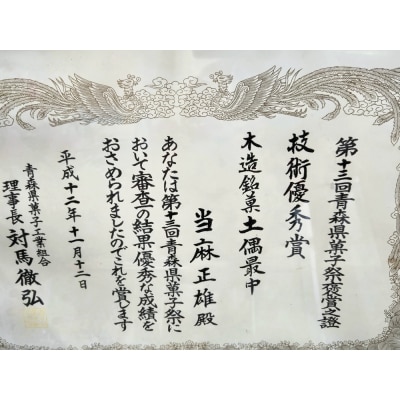 第十三回青森県菓子祭褒賞之證
技術優秀賞
木造銘菓土偶最中
当麻正雄殿
あなたは第十三回青森県菓子祭に
おいて審査の結果優秀な成績を
おさめられましたのでこれを賞します
平成十二年十一月十二日
青森県菓子工業組合
理事長対馬徹弘